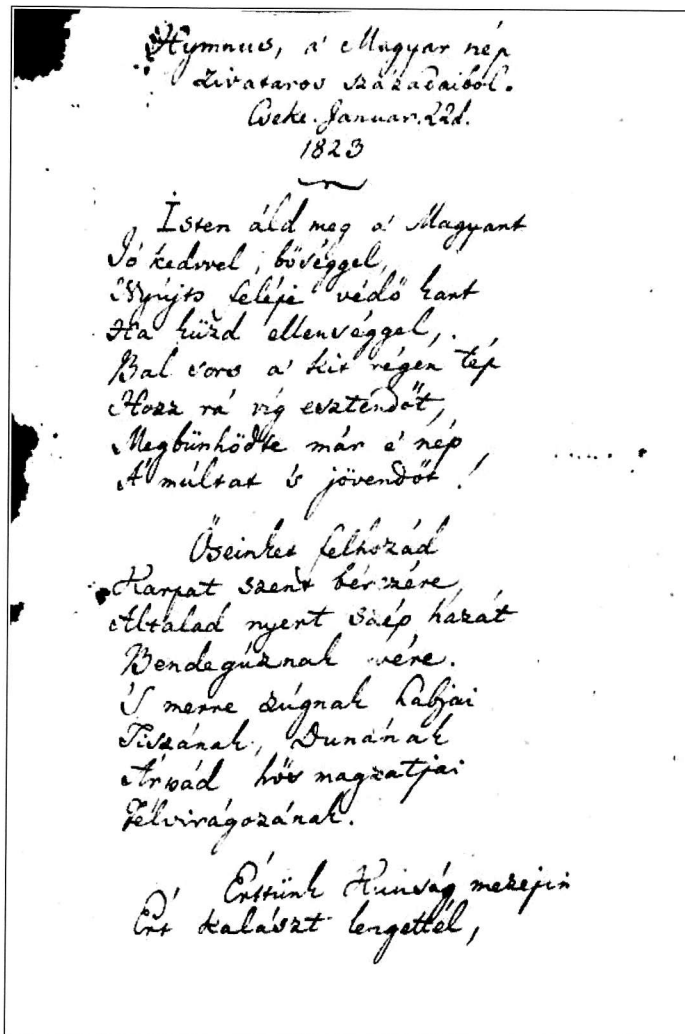 Hymnus, a' Magyar nép
zivataros századaiból.
Cseke. Januar. 22d.
1823
Isten áld meg a' Magyart
Jó kedvvel, bőséggel,
Nyújts feléje védő kart
Ha küzd ellenséggel,
Bal sors a' kit régen tép
Hozz rá víg esztendőt,
Megbünhödte már e' nép
A' múltat 's jövendőt!
Őseinket felhozád
Kárpát szent bérczére
Általad nyert szép hazát
Bendegúznak vére.
'S merre zúgnak habjai
Tiszának, Dunának
Árpád hős magzatjai
Felvirágozának.
Érttünk Kunság mezején
Ért kalászt lengettél,